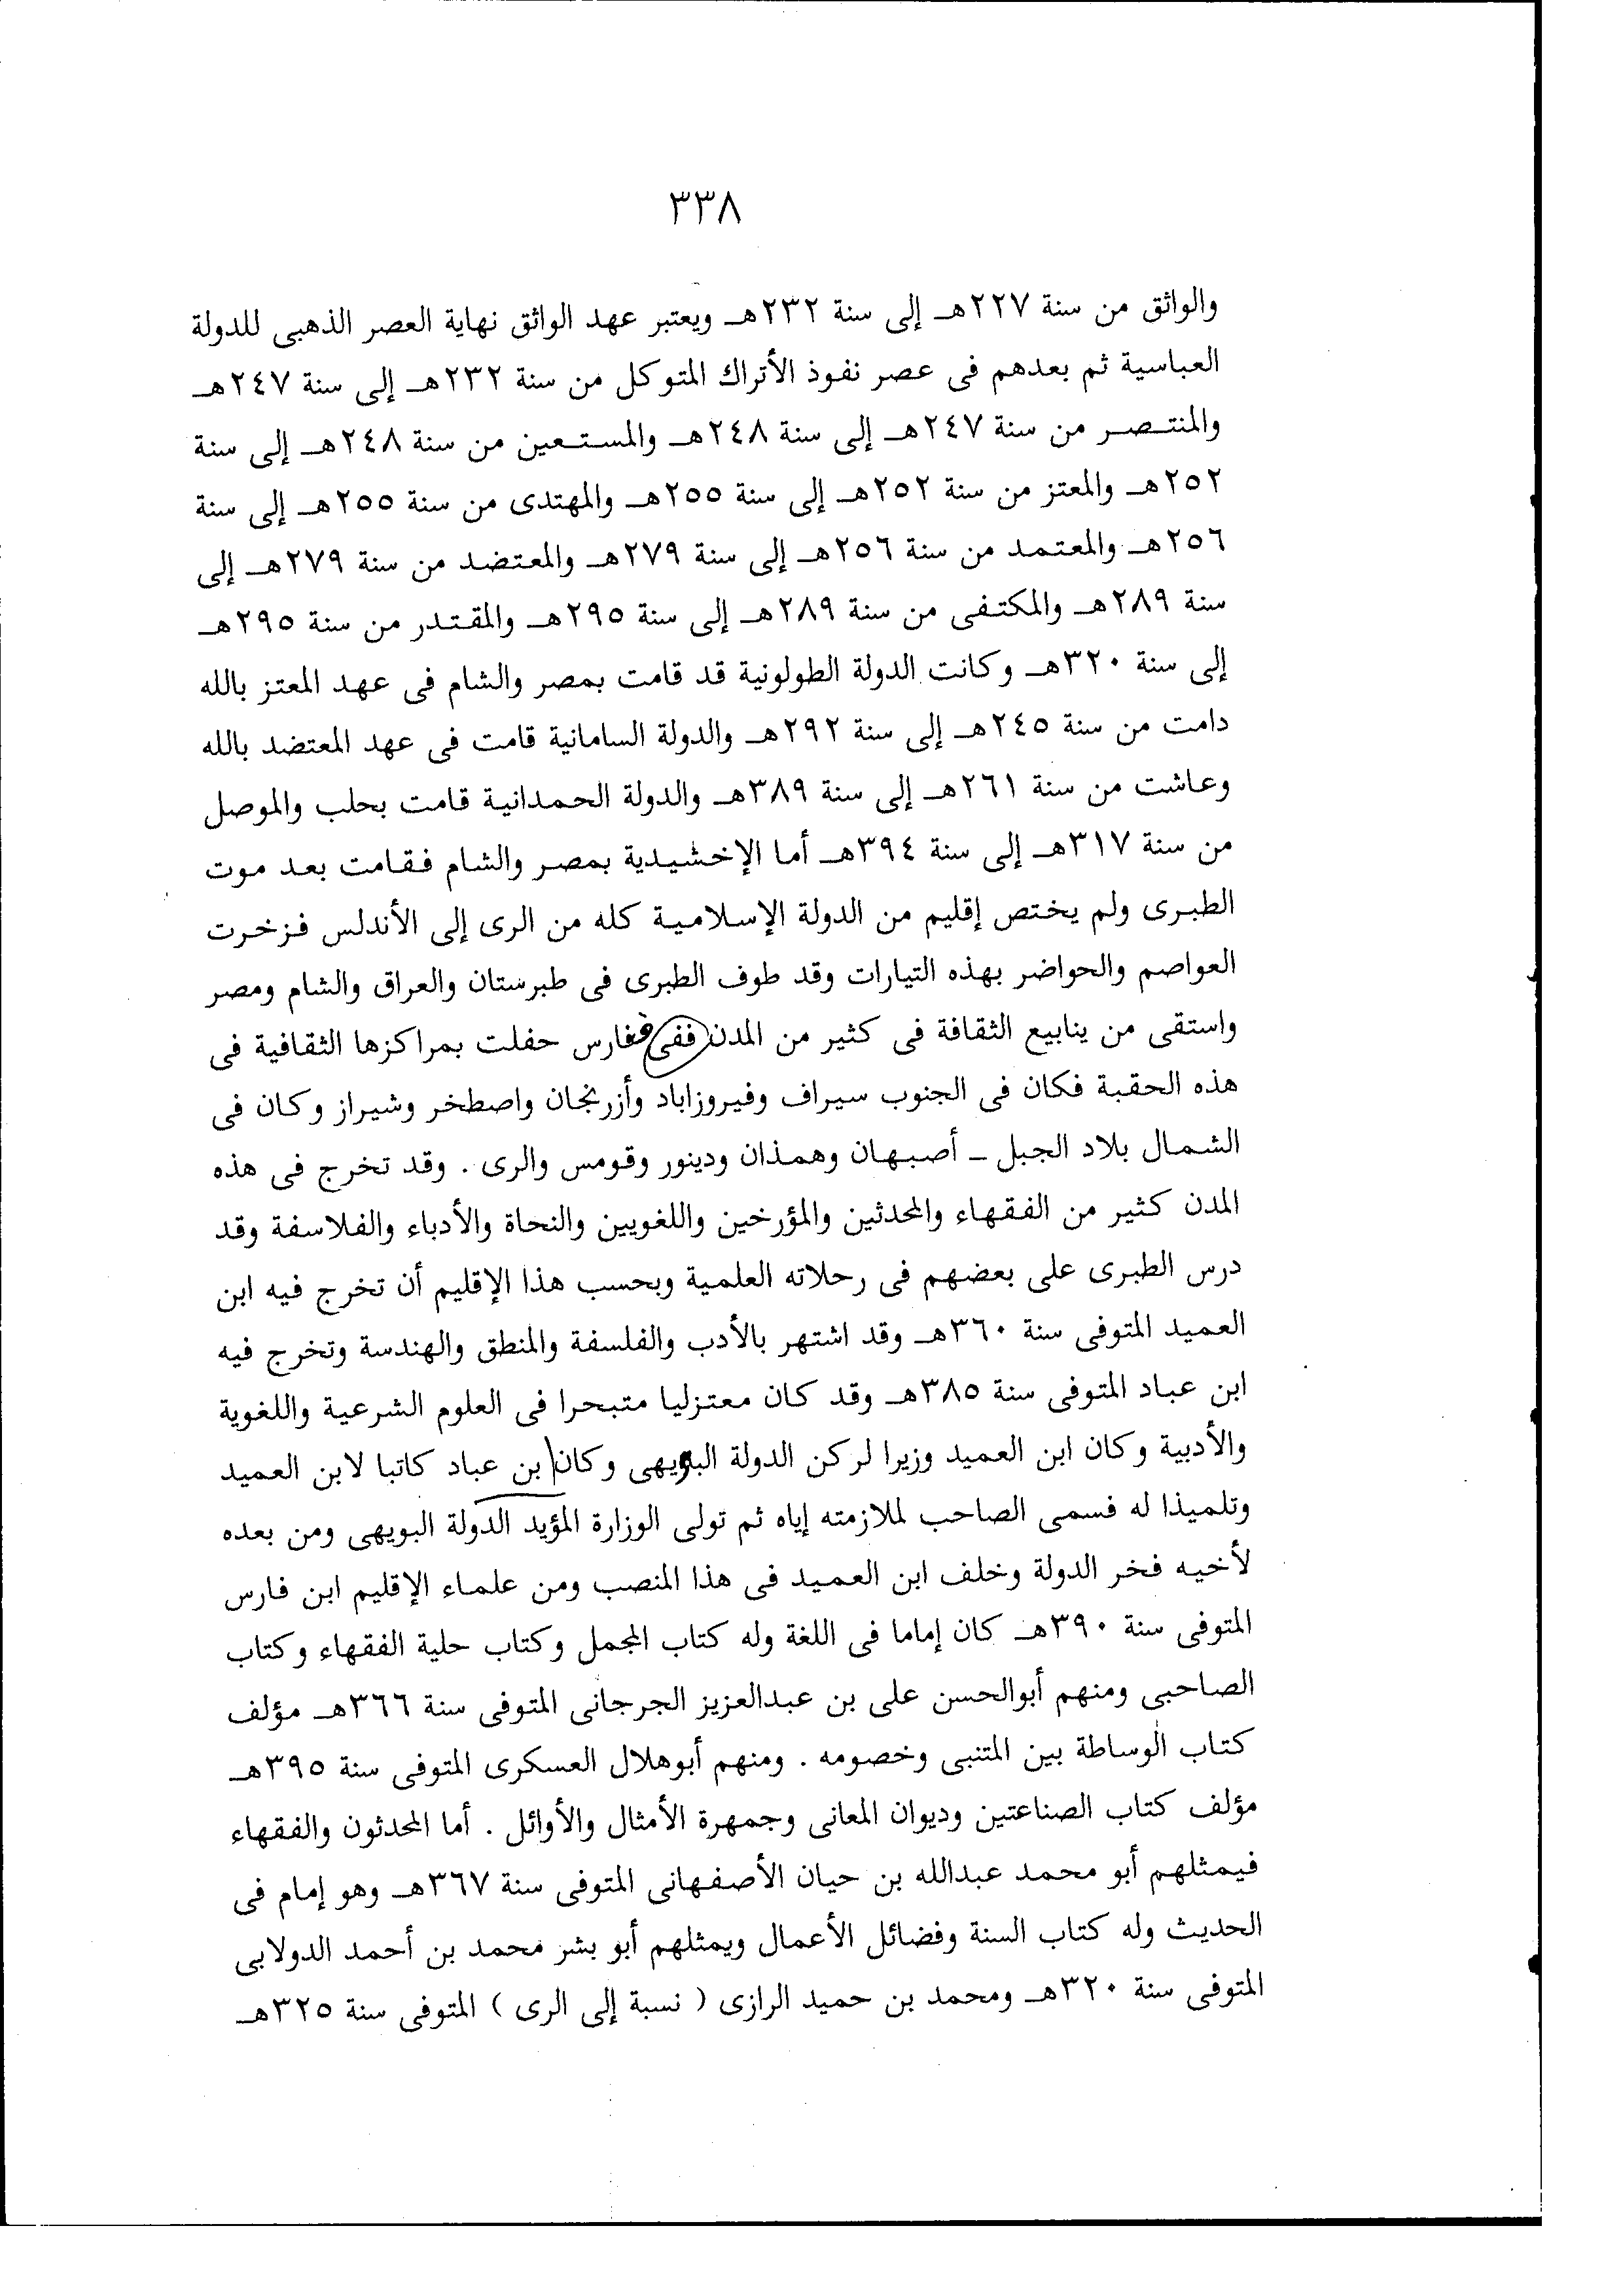 ٣٣٨
والواثق من سنة ٢٢٧هـ إلى سنة ٢٣٢هـ ويعتبر عهد الواثق نهاية العصر الذهبى للدولة
العباسية ثم بعدهم فى عصر نفوذ الأتراك المتوكل من سنة ٢٣٢هـ إلى سنة ٢٤٧هـ
والمنتصر من سنة ٢٤٧هـ إلى سنة ٢٤٨هـ والمستعين من سنة ٢٤٨هـ إلى سنة
٢٥٢هـ والمعتز من سنة ٢٥٢هـ إلى سنة ٢٥٥هـ والمهتدى من سنة ٢٥٥هـ إلى سنة
٢٥٦هـ والمعتمد من سنة ٢٥٦هـ إلى سنة ٢٧٩هـ والمعتضد من سنة ٢٧٩هـ إلى
سنة ٢٨٩هـ والمكتفى من سنة ٢٨٩هـ إلى سنة ٢٩٥هـ والمقتدر من سنة ٢٩٥هـ
إلى سنة ٣٢٠هـ وكانت الدولة الطولونية قد قامت بمصر والشام فى عهد المعتز بالله
دامت من سنة ٢٤٥هـ إلى سنة ٢٩٢هـ والدولة السامانية قامت فى عهد المعتضد بالله
وعاشت من سنة ٢٦١هـ إلى سنة ٣٨٩هـ والدولة الحمدانية قامت بحلب والموصل
من سنة ٣١٧هـ إلى سنة ٣٩٤هـ أما الإخشيدية بمصر والشام فقامت بعد موت
الطبرى ولم يختص إقليم من الدولة الإسلامية كله من الرى إلى الأندلس فزخرت
العواصم والحواضر بهذه التيارات وقد طوف الطبرى فى طبرستان والعراق والشام ومصر
واستقى من ينابيع الثقافة فى كثير من المدن ففى ففارس حفلت بمراكزها الثقافية فى
هذه الحقبة فكان فى الجنوب سيراف وفيروزاباد وأزرنجان واصطخر وشيراز وكان فى
الشمال بلاد الجبل ـ أصبهان وهمذان ودينور وقومس والرى . وقد تخرج فى هذه
المدن كثير من الفقهاء والمحدثين والمؤرخين واللغويين والنحاة والأدباء والفلاسفة وقد
درس الطبرى على بعضهم فى رحلاته العلمية وبحسب هذا الإقليم أن تخرج فيه ابن
العميد المتوفى سنة ٣٦٠هـ وقد اشتهر بالأدب والفلسفة والمنطق والهندسة وتخرج فيه
ابن عباد المتوفى سنة ٣٨٥هـ وقد كان معتزليا متبحرا فى العلوم الشرعية واللغوية
والأدبية وكان ابن العميد وزيرا لركن الدولة البويهى وكان ابن عباد كاتبا لابن العميد
وتلميذا له فسمى الصاحب لملازمته إياه ثم تولى الوزارة المؤيد الدولة البويهى ومن بعده
لأخيه فخر الدولة وخلف ابن العميد فى هذا المنصب ومن علماء الإقليم ابن فارس
المتوفى سنة ٣٩٠هـ كان إماما فى اللغة وله كتاب المجمل وكتاب حلية الفقهاء وكتاب
الصاحبى ومنهم أبوالحسن على بن عبدالعزيز الجرجانى المتوفى سنة ٣٦٦هـ مؤلف
كتاب الوساطة بين المتنبى وخصومه . ومنهم أبوهلال العسكرى المتوفى سنة ٣٩٥هـ
مؤلف كتاب الصناعتين وديوان المعانى وجمهرة الأمثال والأوائل . أما المحدثون والفقهاء
فيمثلهم أبو محمد عبدالله بن حيان الأصفهانى المتوفى سنة ٣٦٧هـ وهو إمام فى
الحديث وله كتاب السنة وفضائل الأعمال ويمثلهم أبو بشر محمد بن أحمد الدولابى
المتوفى سنة ٣٢٠هـ ومحمد بن حميد الرازى ( نسبة إلى الرى ) المتوفى سنة ٣٢٥هـ